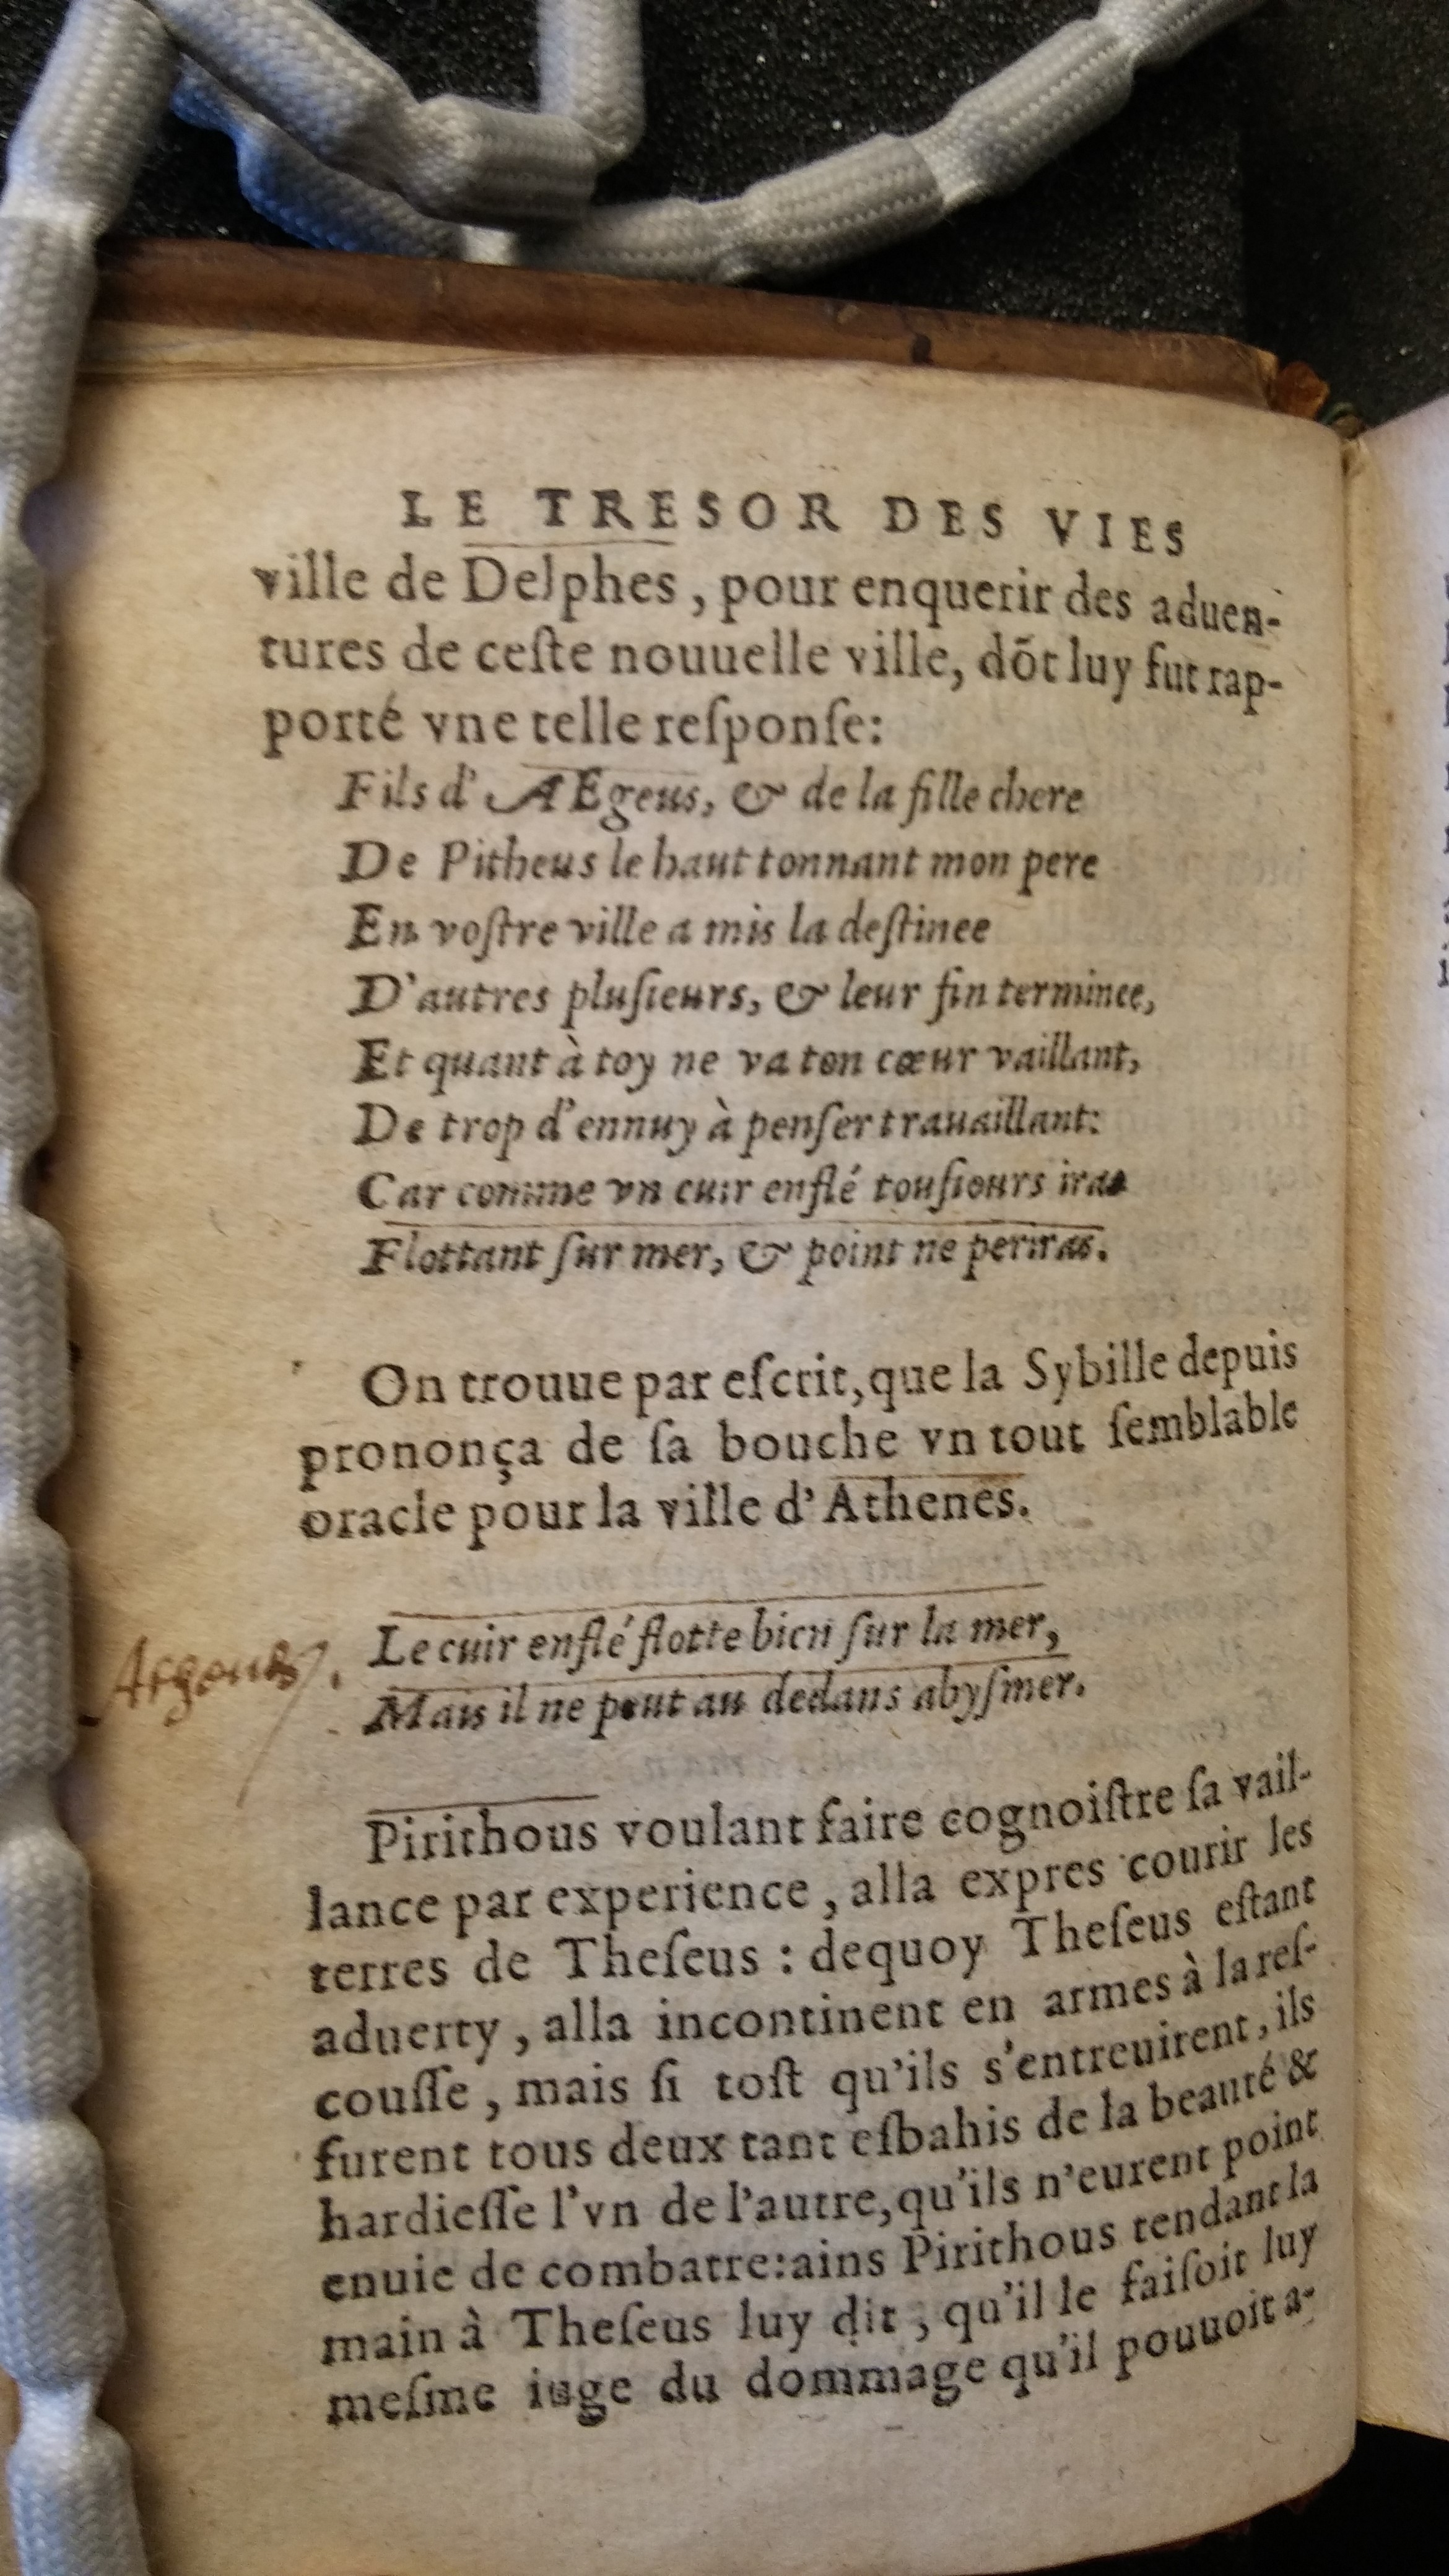 LE TRESOR DES VIES
ville de Delphes, pour enquerir des aduen-
tures de ceſte nouuelle ville, dõt luy fut rap-
porté vne telle reſponſe:
Fils d'AEgeus, & de la fille chere
De Pitheus le haut tonnant mon pere
En voſtre ville a mis la deſtinee
D'autres pluſieurs, & leur fin terminee,
Et quant à toy ne va ton cœur vaillant,
De trop d'ennuy à penſer trauaillant:
Car comme vn cuir enflé touſiours iras
Flottant ſur mer, & point ne periras.
On trouue par eſcrit, que la Sybille depuis
prononça de ſa bouche vn tout ſemblable
oracle pour la ville d'Athenes.
Le cuir enflé flotte bien ſur la mer,
Mais il ne peut au dedans abyſmer.
Pirithous voulant faire cognoiſtre ſa vail-
lance par experience, alla expres courir les
terres de Theſeus : dequoy Theſeus eſtant
aduerty, alla incontinent en armes à la reſ-
couſſe, mais ſi toſt qu'ils s'entreuirent, ils
furent tous deux tant eſbahis de la beauté &
hardieſſe l'vn de l'autre, qu'ils n'eurent point
enuie de combatre: ains Pirithous tendant la
main à Theſeus luy dit, qu'il le faiſoit luy
meſme iuge du dommage qu'il pouuoit a-